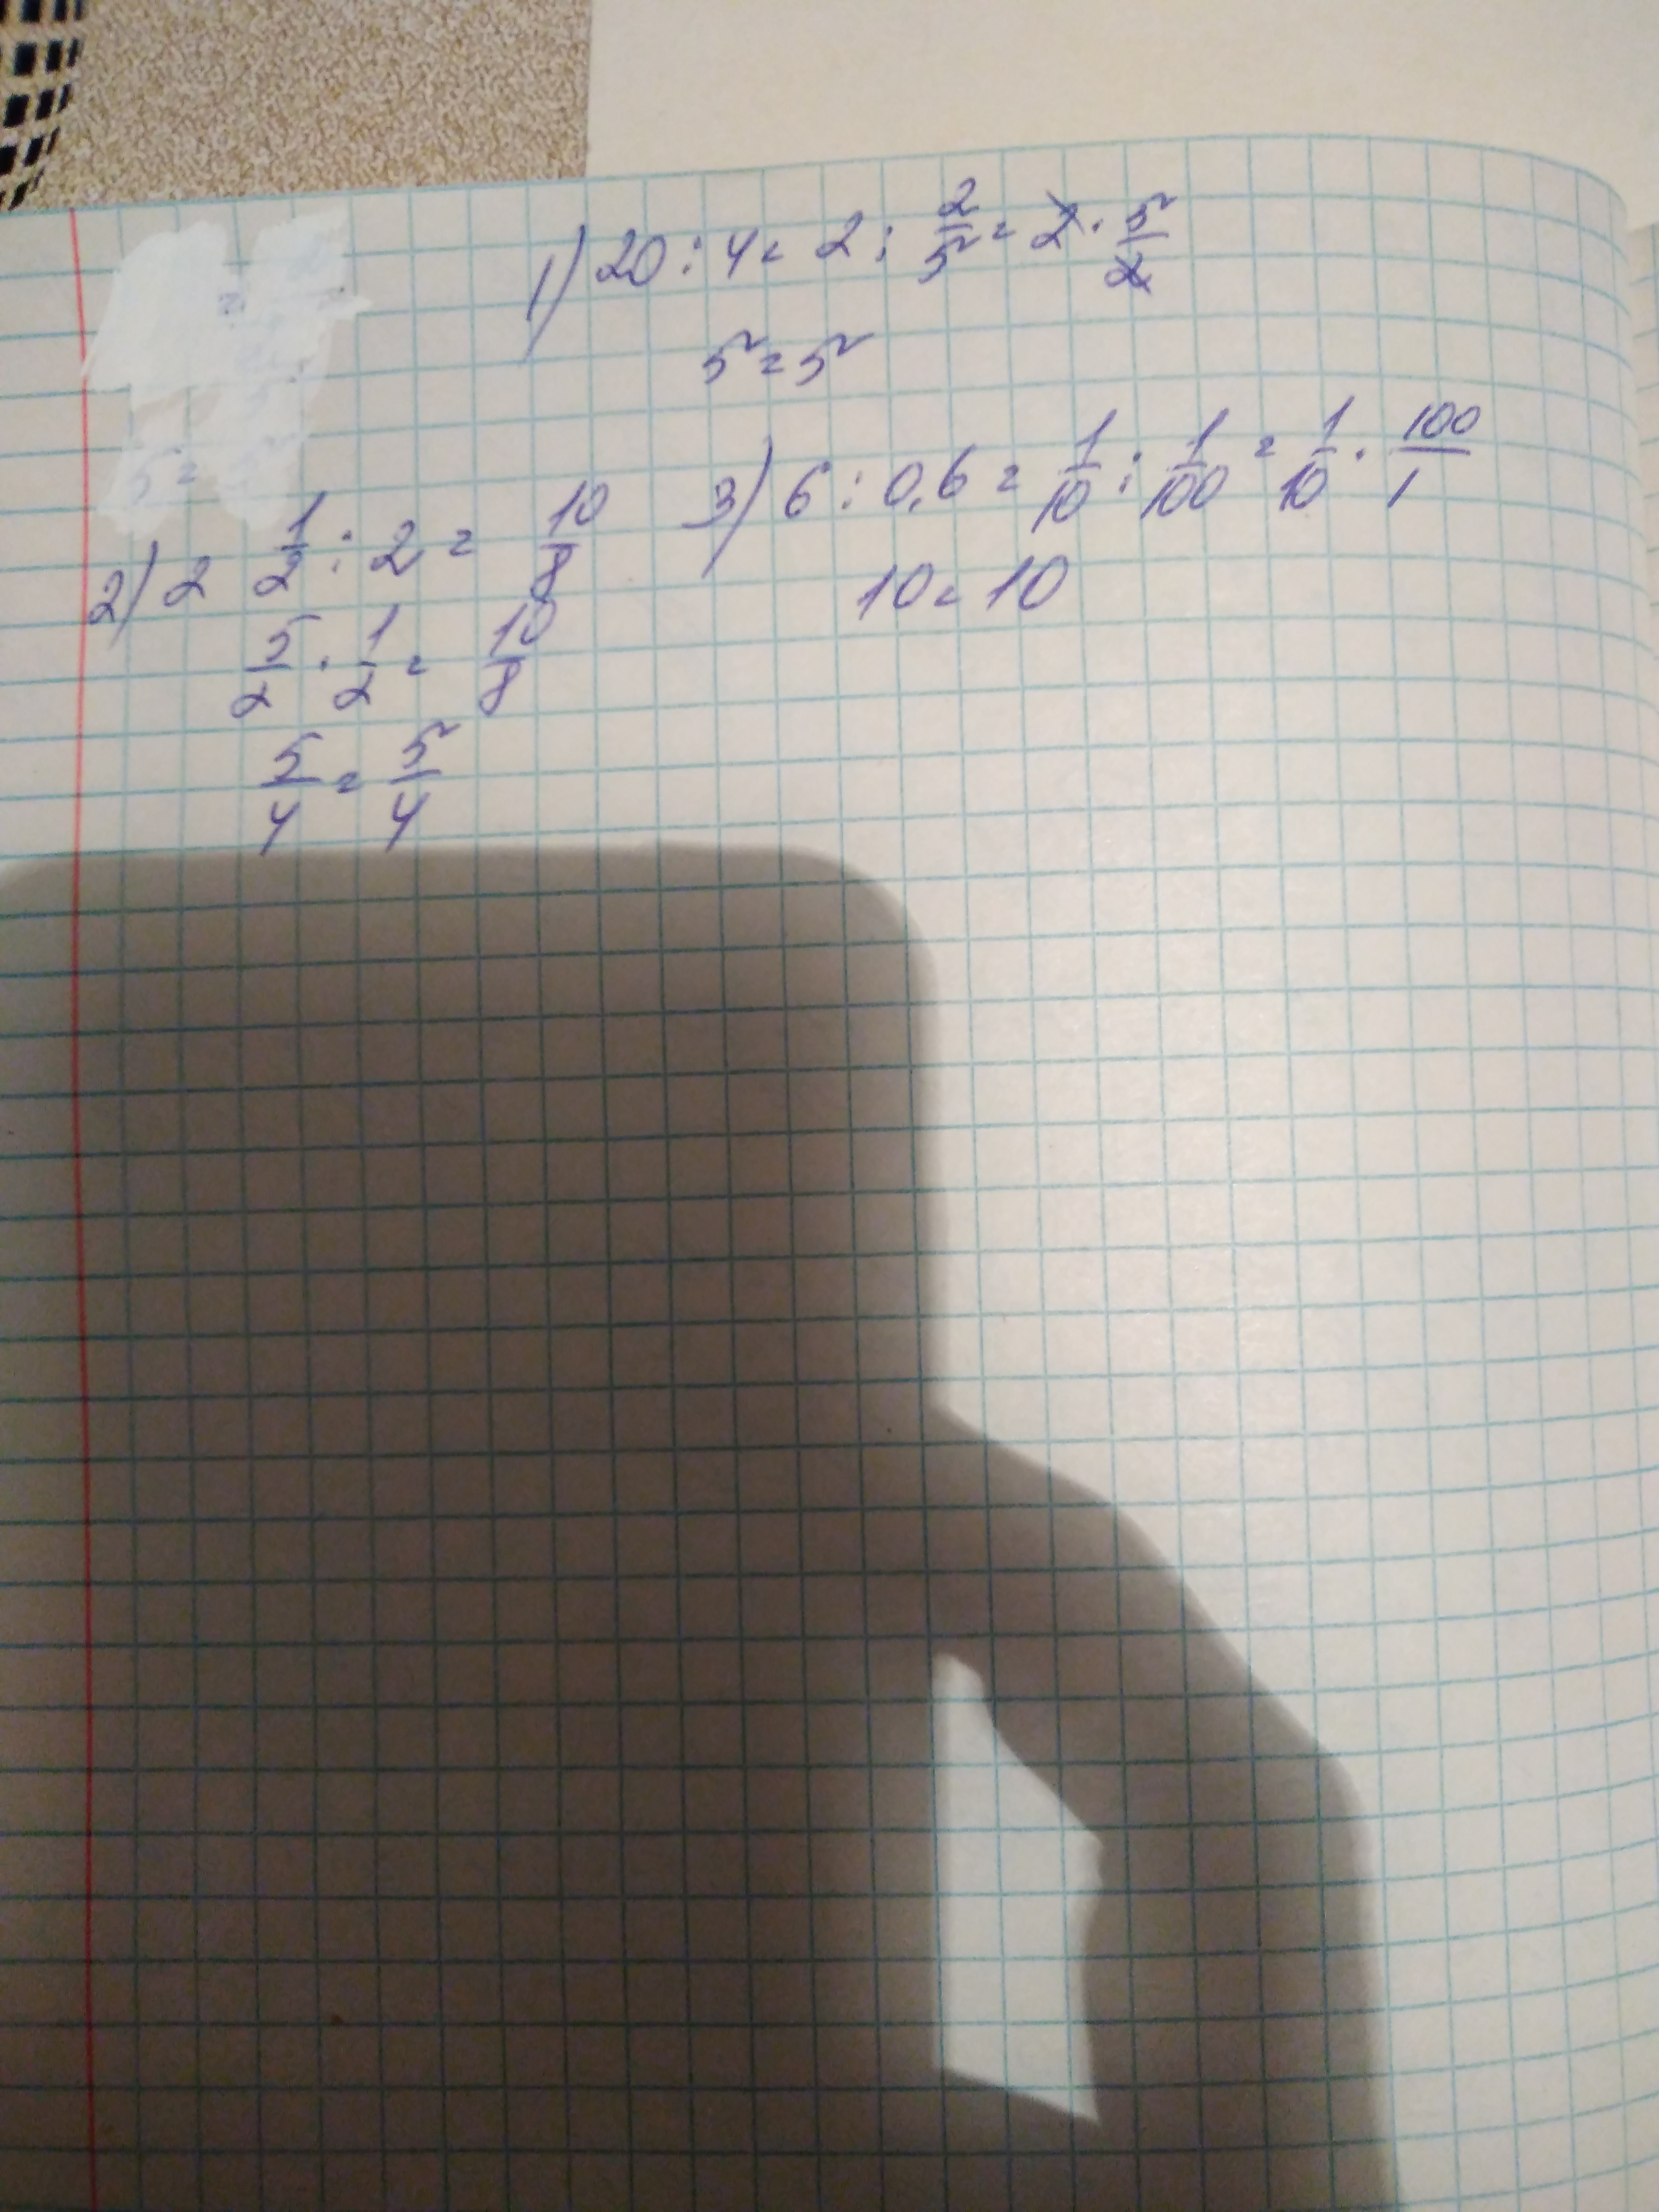 1) 20 : 4 = 2 : 2/5 = 2 · 5/2
5 = 5
5 =
2) 2 1/2 : 2 = 10/8
5/2 · 1/2 = 10/8
5/4 = 5/4
3) 6 : 0,6 = 1/10 : 1/100 = 1/10 · 100/1
10 = 10